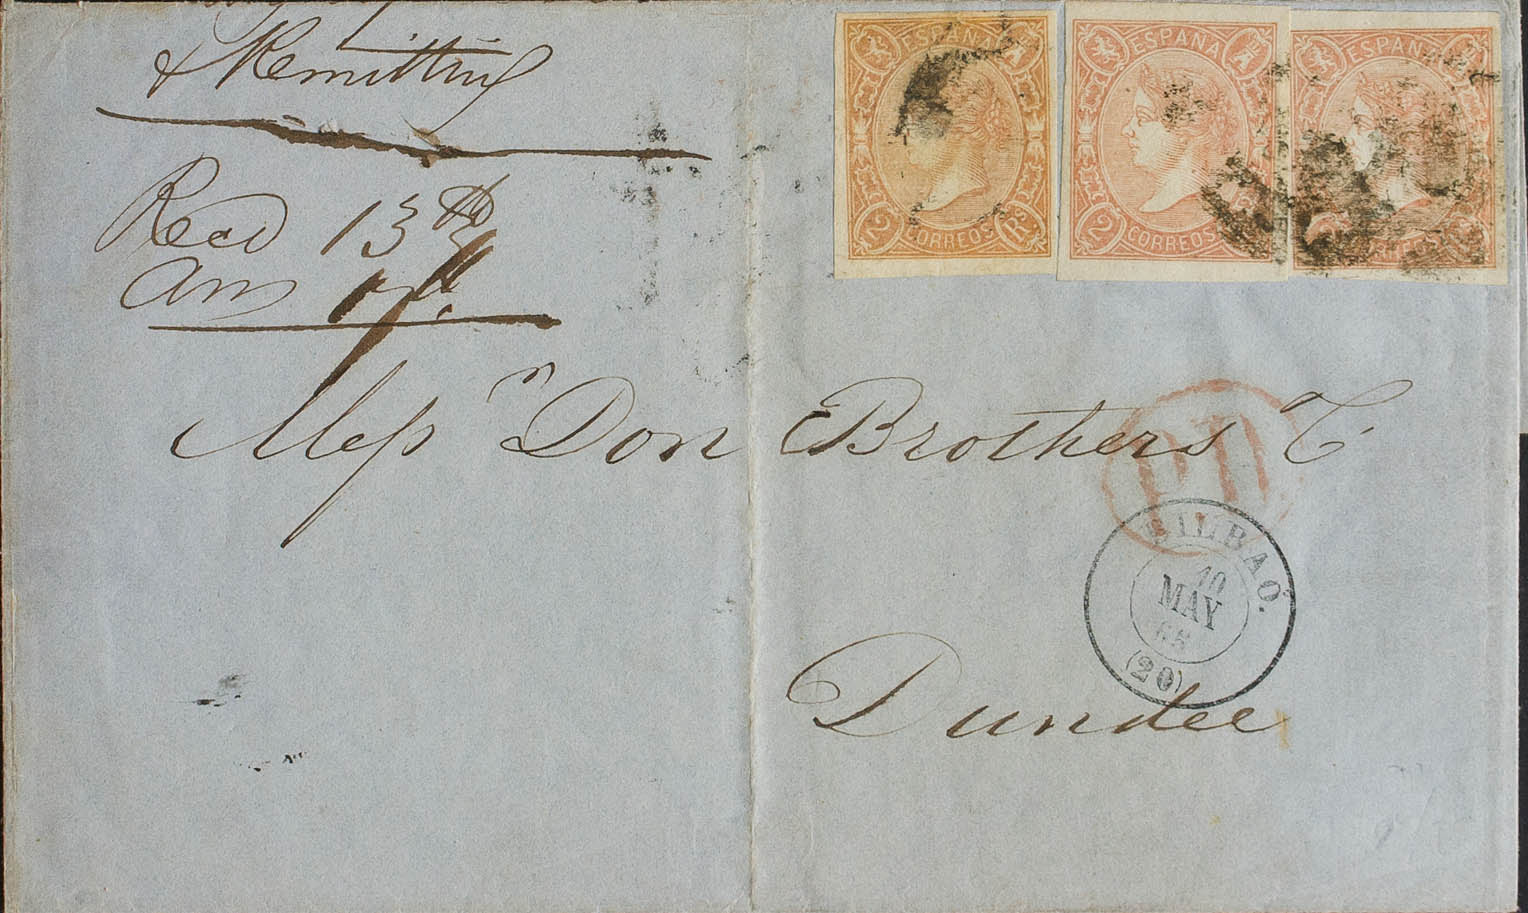 & Remitting
Recd 13th
Ans
ESPAÑA
2 CORREOS Rs
ESPAÑA
2 CORREOS
ESPAÑA
CORREOS
Messrs Don Brothers Co
PD
BILBAO.
10
MAY
65
(20)
Dundee